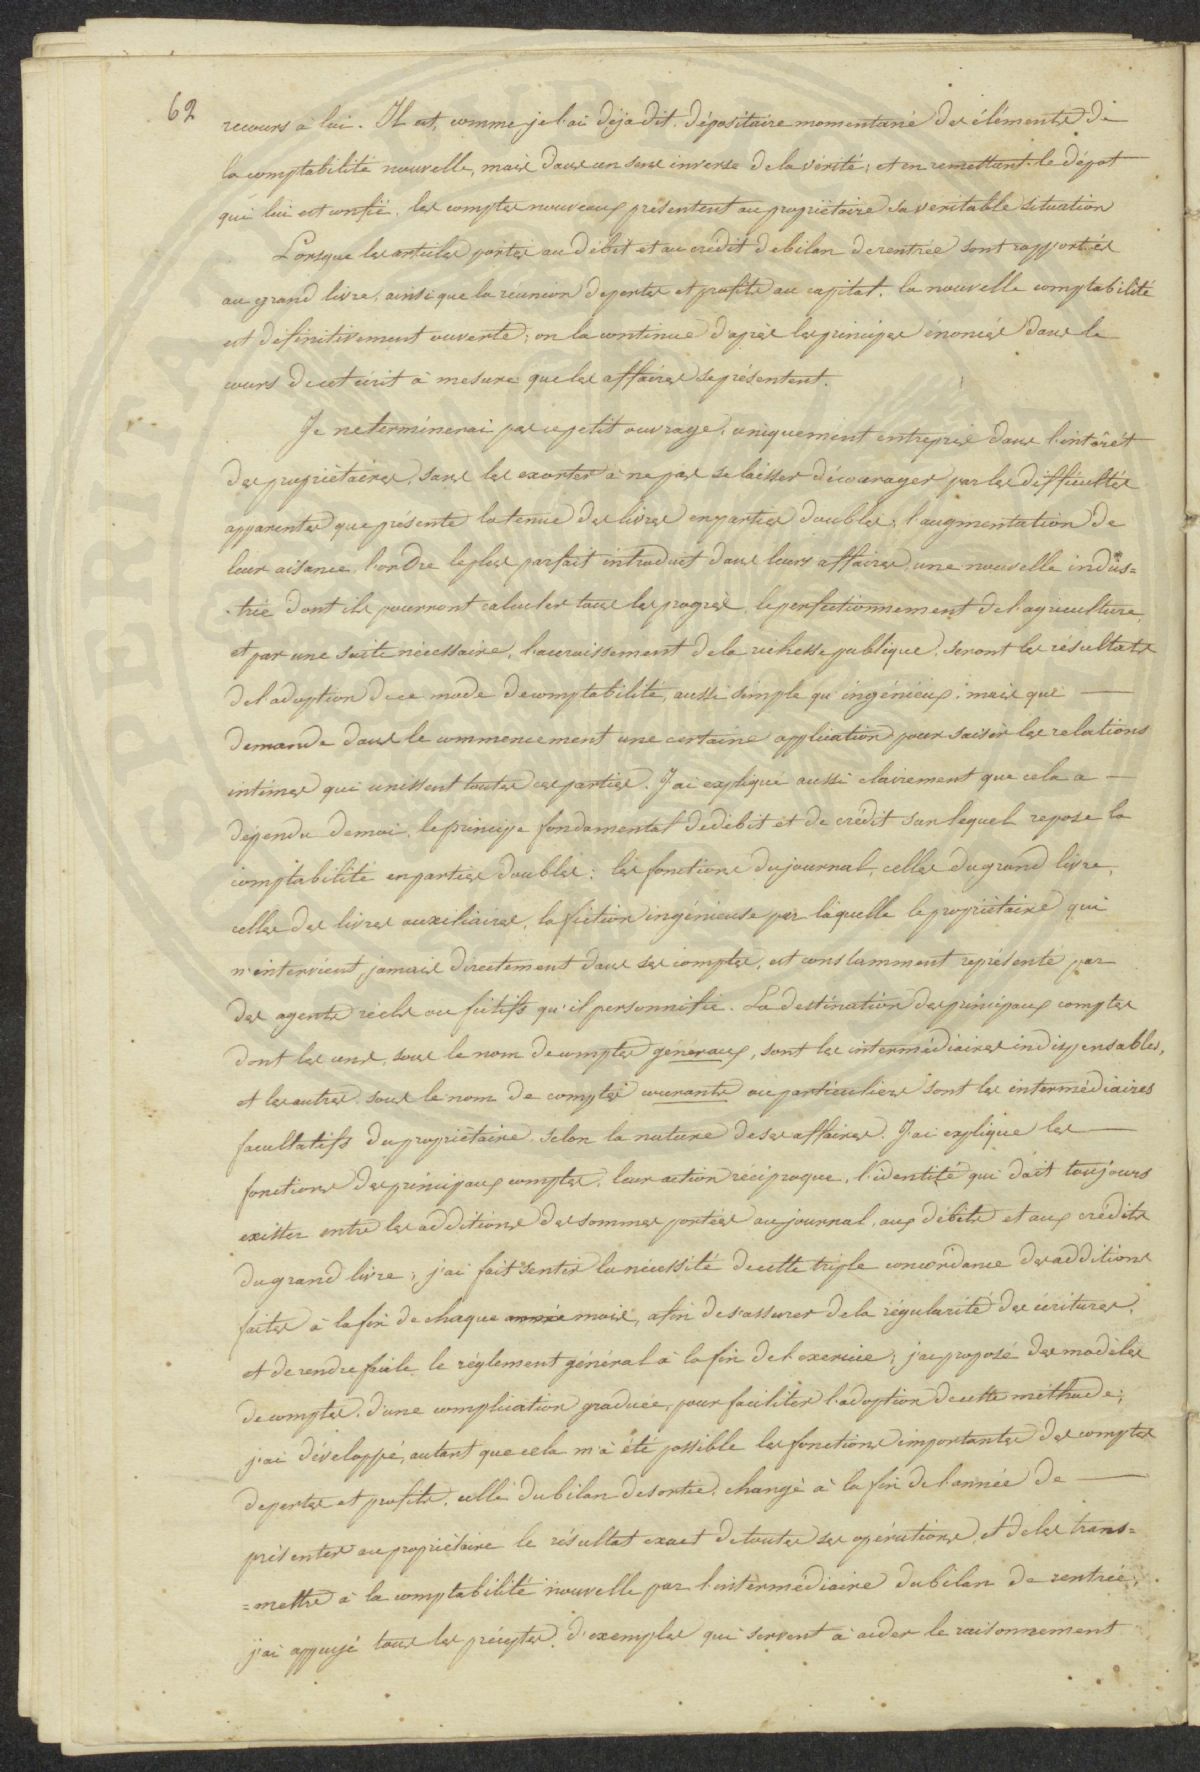 62
recours à lui. Il est, comme je l'ai déja dit, dépositaire momentané des éléments de
la comptabilité nouvelle, mais dans un sens inverse de la vérité; et en remettant le dépot
qui lui est confié, les comptes nouveaux présentent au propriétaire sa veritable situation
Lorsque les articles portés au débit et au crédit de bilan de rentrée sont rapportés
au grand livre, ainsi que la réunion de pertes et profits au capital, la nouvelle comptabilité
est définitivement ouverte; on la continue d'après les principes énoncés dans le
cours de cet écrit à mesure que les affaires se présentent.
Je ne terminerai pas ce petit ouvrage, uniquement entrepris dans l'intérêt
des propriétaires, sans les exorter à ne pas se laisser décourager par les difficultés
apparentes que présente la tenue des livres en parties doubles; l'augmentation de
leur aisance, l'ordre le plus parfait introduit dans leurs affaires, une nouvelle indus=
trie dont ils pourront calculer tous les progrès, le perfectionnement de l'agriculture,
et par une suite nécessaire, l'accroissement de la richesse publique, seront les résultats
de l'adoption de ce mode de comptabilité, aussi simple qu'ingénieux; mais que
demande dans le commencement une certaine application pour saisir les relations
intimes qui unissent toutes ces parties. J'ai expliqué aussi clairement que cela a
dépendu de moi, le principe fondamental de débit et de crédit sur lequel repose la
comptabilité en parties doubles: les fonctions du journal, celles du grand livre,
celles des livres auxiliaires, la fiction ingénieuse par laquelle le propriétaire qui
n'intervient jamais directement dans ses comptes, est constamment représenté par
des agents réels ou fictifs qu'il personnifie. La destination des principaux comptes
dont les uns, sous le nom de comptes généraux, sont les intermédiaires indispensables,
et les autres sous le nom de comptes courants ou particuliers sont les intermédiaires
facultatifs du propriétaire, selon la nature de ses affaires. J'ai expliqué les
fonctions des principaux comptes, leur action réciproque, l'identité qui doit toujours
exister entre les additions des sommes portées au journal, aux débits et aux crédits
du grand livre; j'ai fait sentir la necessité de cette triple concordance des additions
faites à la fin de chaque année mois, afin de s'assurer de la régularité des écritures,
et de rendre facile le réglement général à la fin de l'exercice; j'ai proposé des modèles
de comptes, d'une complication graduée, pour faciliter l'adoption de cette méthode;
j'ai développé, autant que cela m'a été possible les fonctions importantes des comptes
de pertes et profits, celle du bilan de sortie, chargé à la fin de l'année de
présenter au propriétaire le résultat exact de toutes ses opérations, et de les trans=
=mettre à la comptabilité nouvelle par l'intermédiaire du bilan de rentrée;
j'ai appuyé tous les préceptes d'exemples qui servent à aider le raisonnement